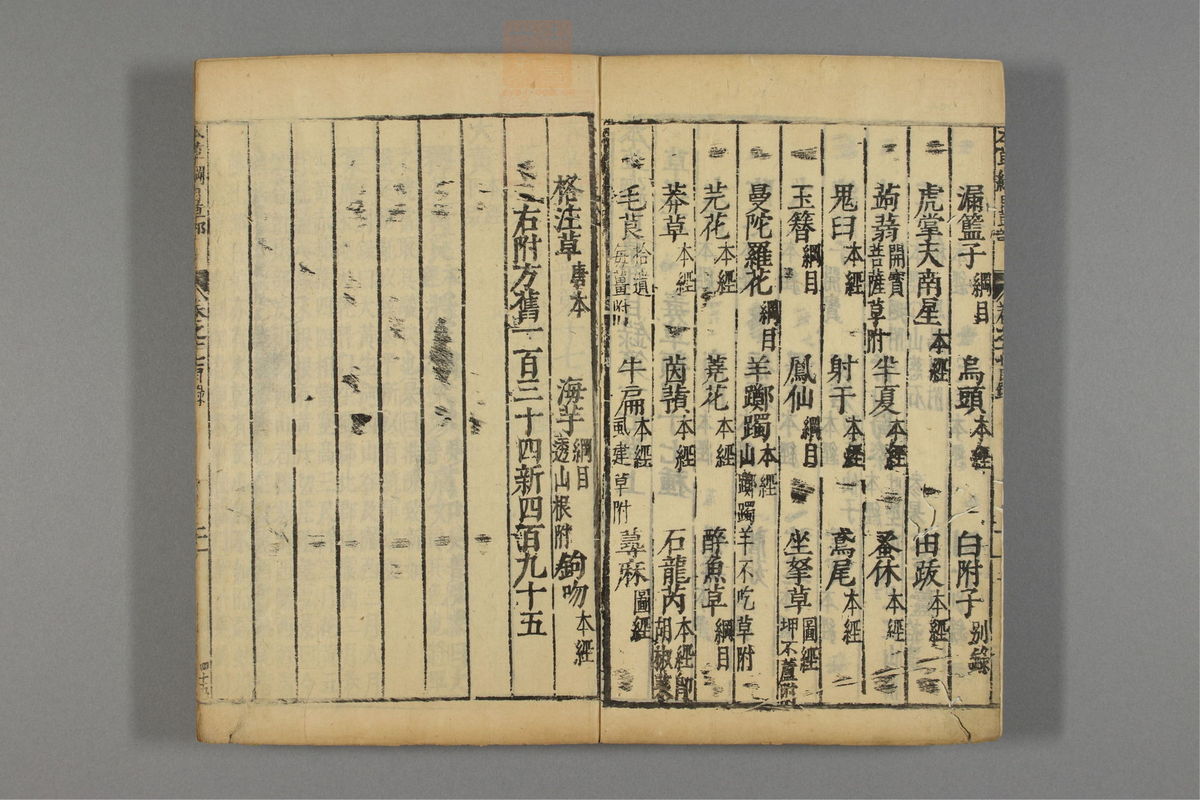 漏籃子 綱目 烏頭 本經 白附子 別錄
虎掌天南星 本經 由跋 本經
蒟蒻 開寶 菩薩草附 半夏 本經 蚤休 本經
鬼臼 本經 射干 本經 鳶尾 本經
玉簪 綱目 鳳仙 綱目 坐拏草 圖經 押不蘆附
曼陀羅花 綱目 羊躑躅 本經 山躑躅 羊不吃草附
芫花 本經 蕘花 本經 醉魚草 綱目
莽草 本經 茵蕷 本經 石龍芮 本經 即胡椒菜
毛茛 拾遺 海薑附 牛扁 本經 虱建草附 蕁麻 圖經
格注草 唐本 海芋 綱目 透山根附 鉤吻 本經
右附方舊一百三十四新四百九十五